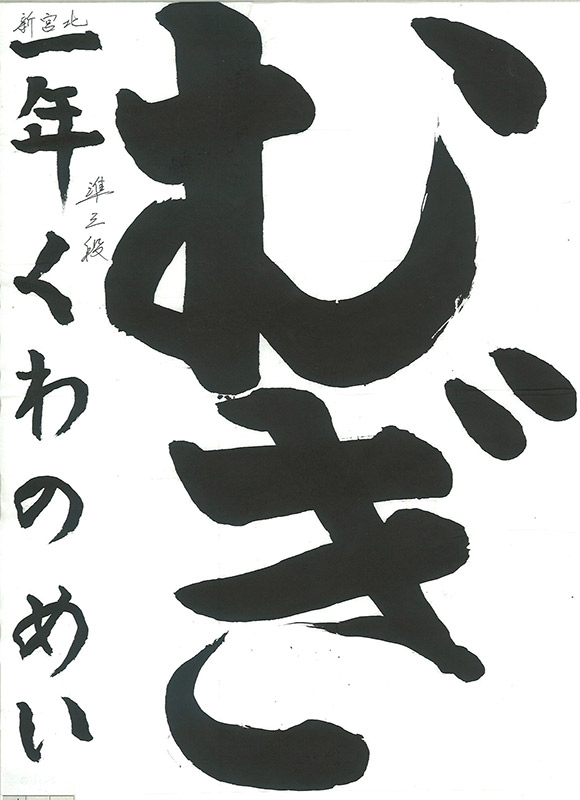 むぎ
準三段
新宮北
一年くわのめい